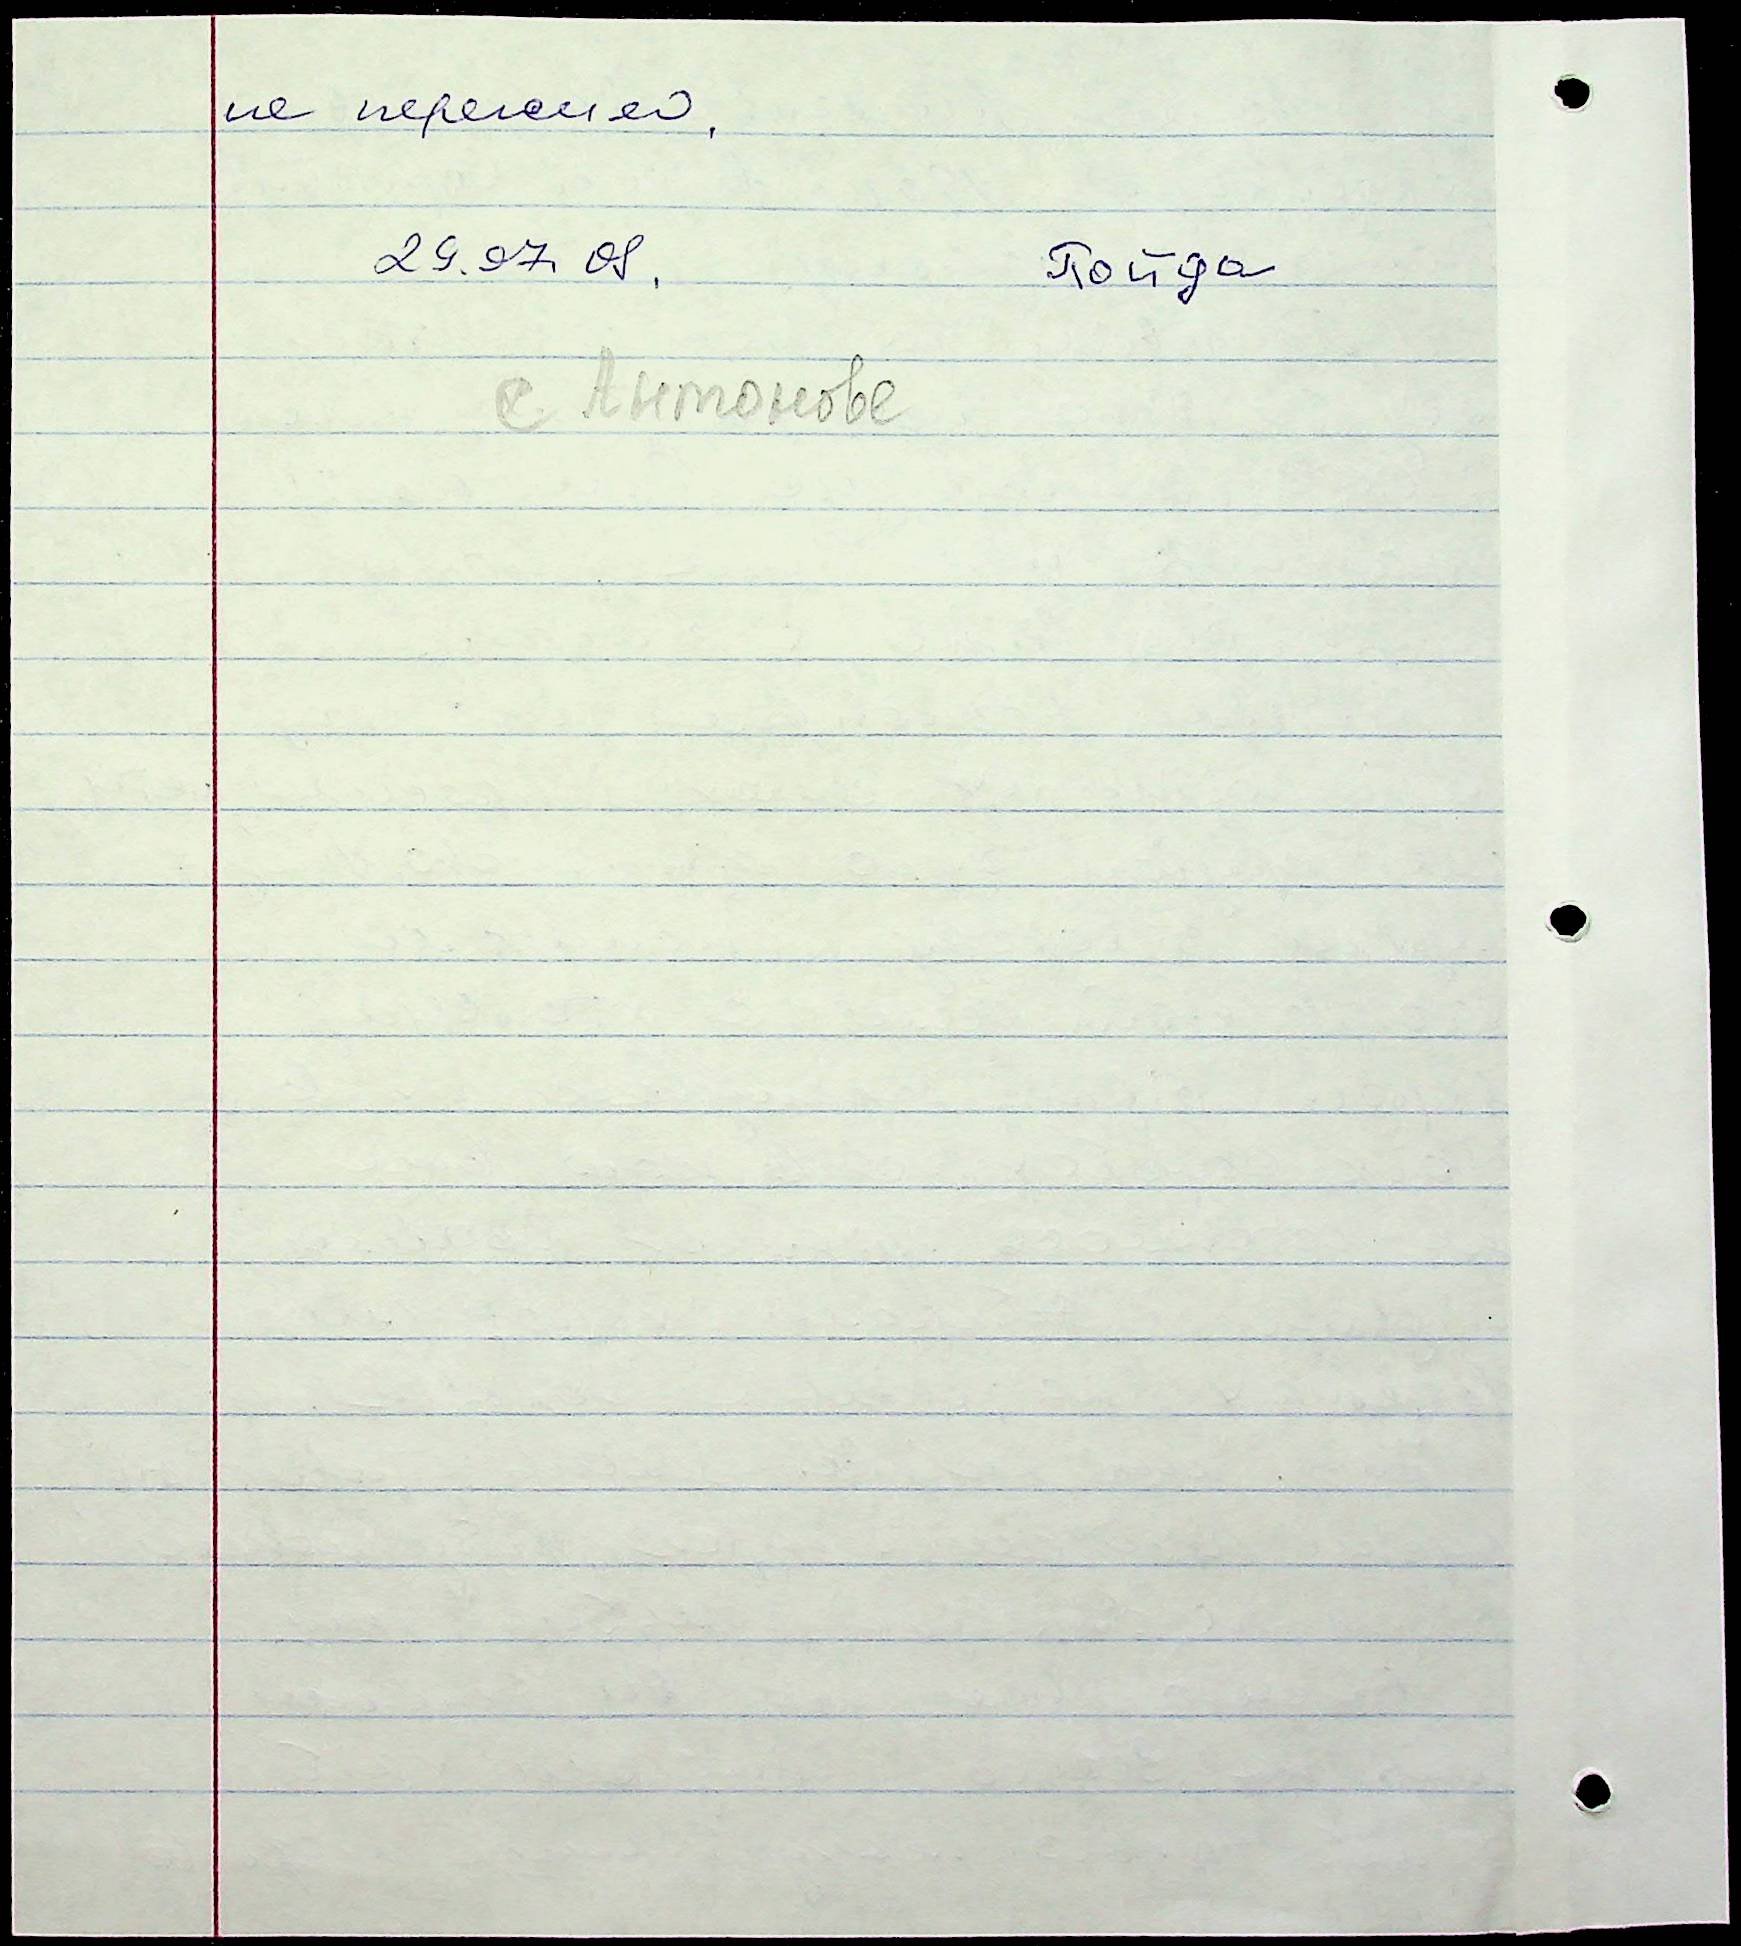 не пережив.
29.07.08. Пойда
с. Антонове